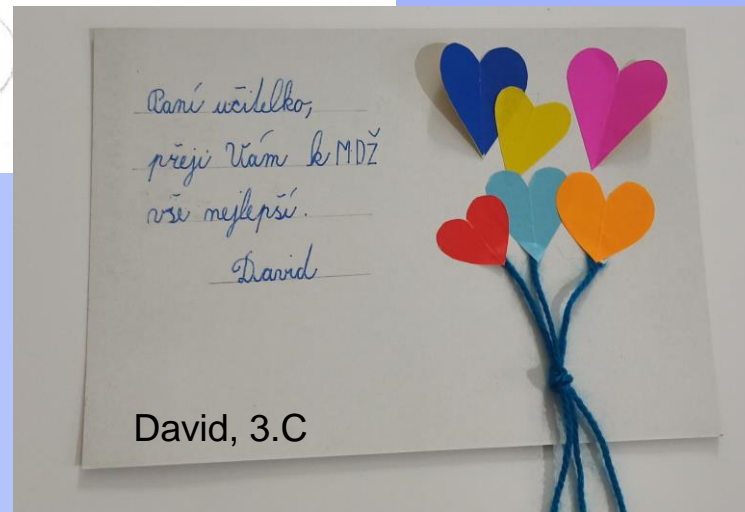 Paní učitelko,
přeji Vám k MDŽ
vše nejlepší.
David
David, 3.C